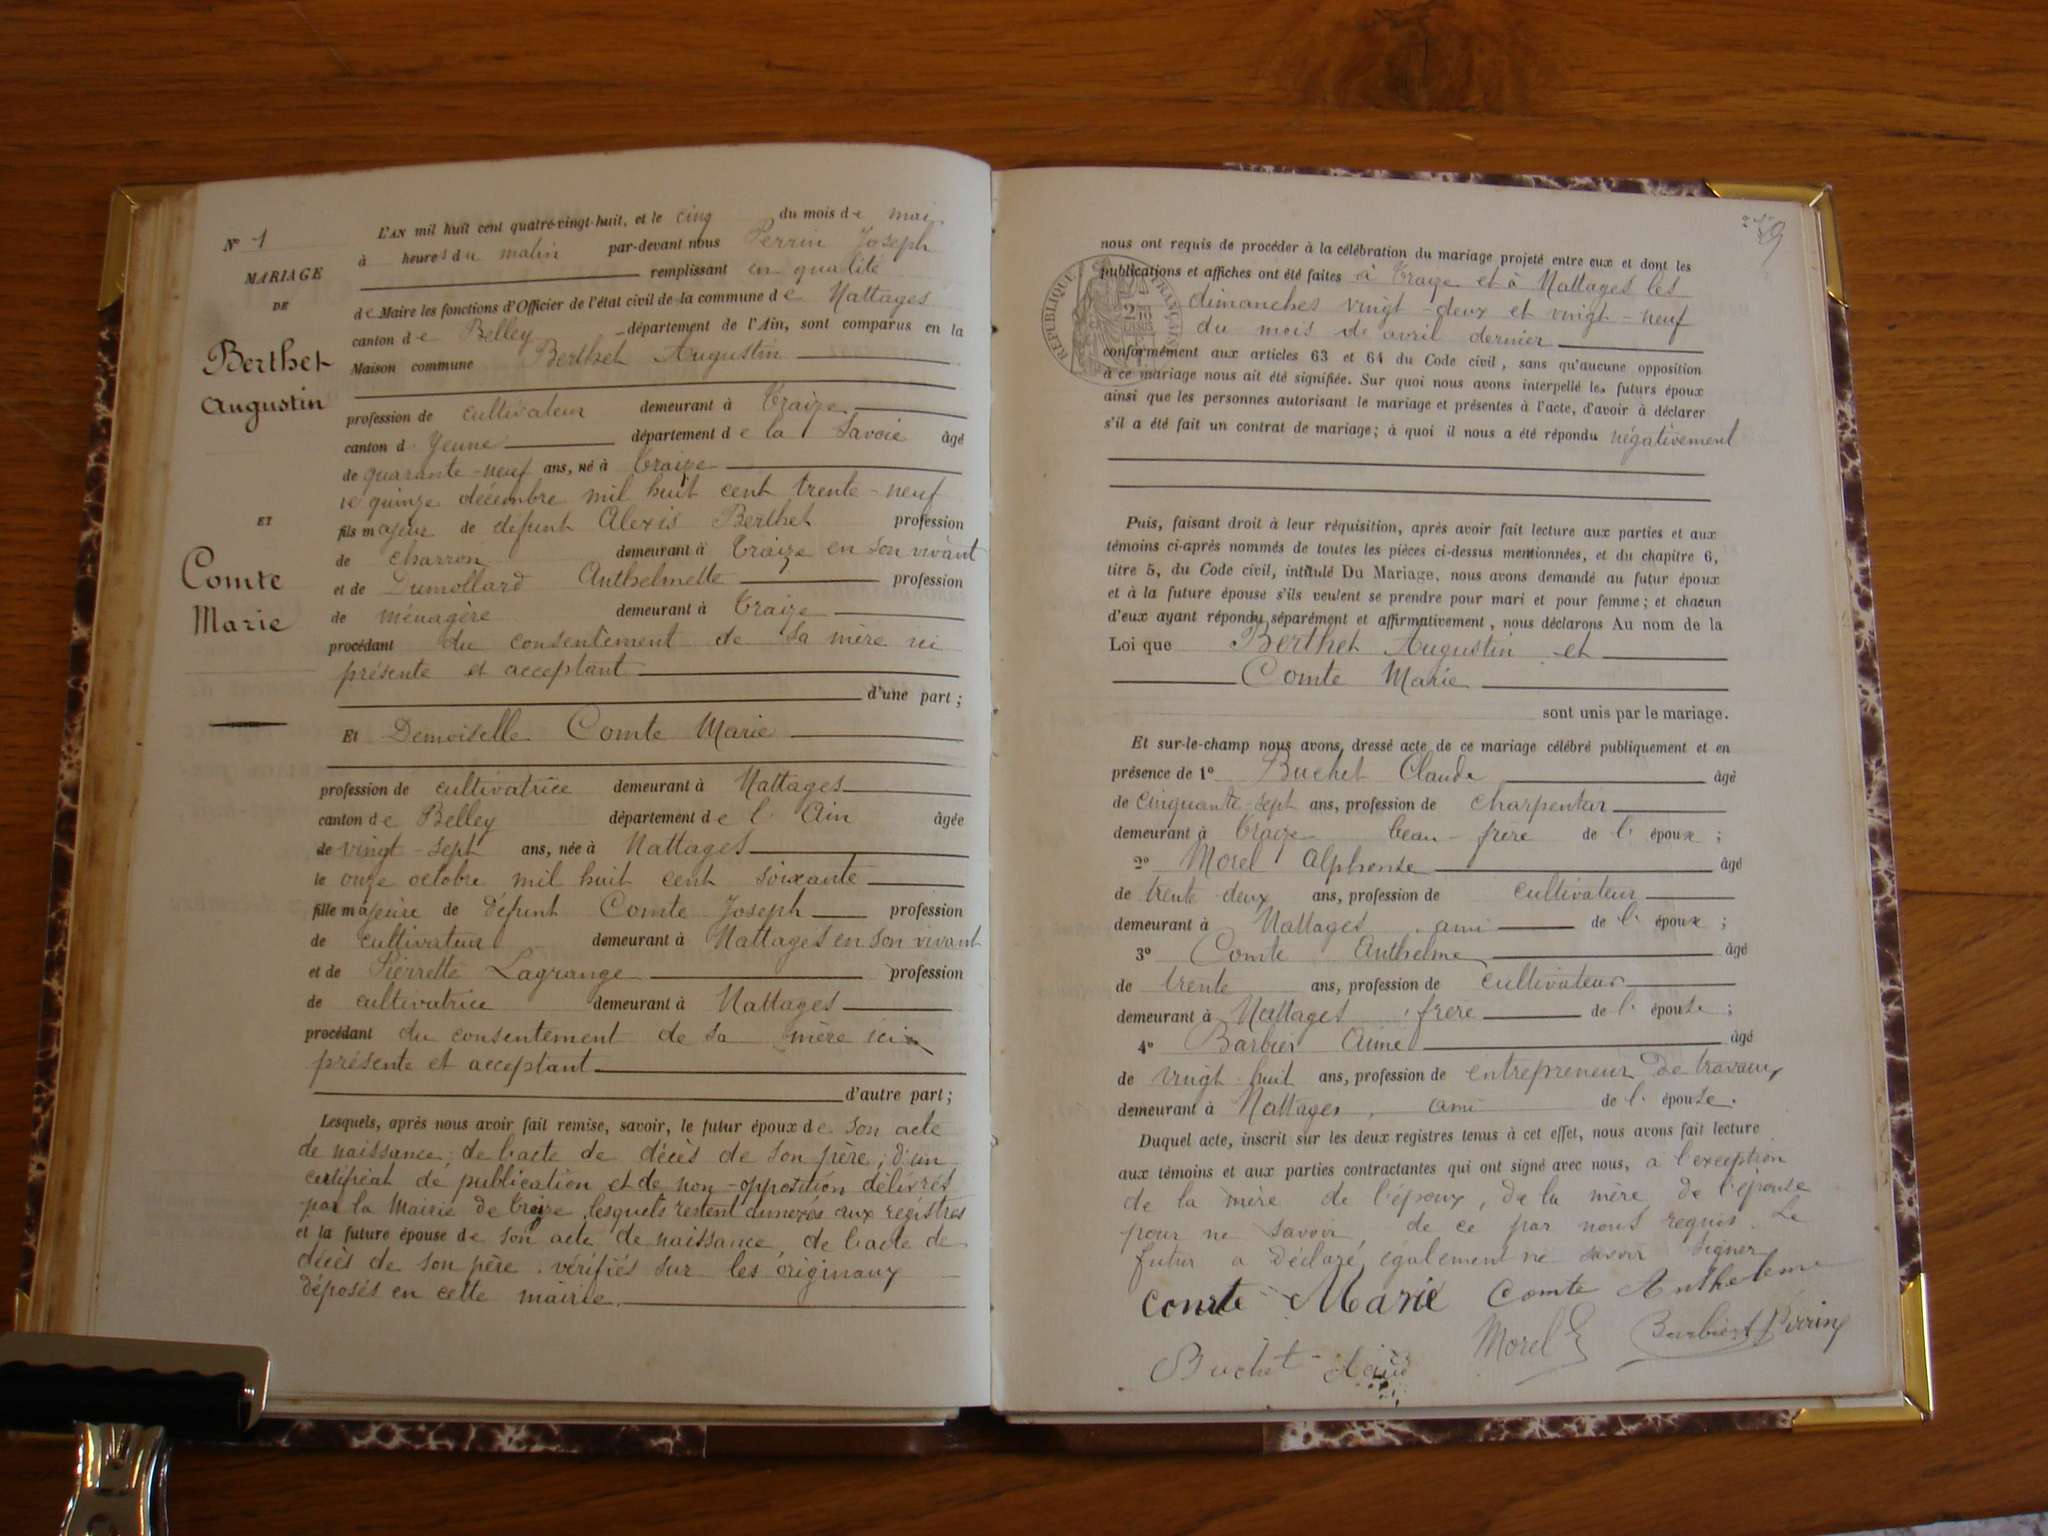 N° 1
MARIAGE
DE
Berthet
Augustin
ET
Comte
Marie
L'AN mil huit cent quatre-vingt-huit, et le cinq du mois de mai
à heures du matin par-devant nous Perrin Joseph
remplissant en qualité
de Maire les fonctions d'Officier de l'état civil de la commune de Nattages
canton de Belley département de l'Ain, sont comparus en la
Maison commune Berthet Augustin
profession de cultivateur demeurant à Traize
canton d. Yenne département de la Savoie âgé
de quarante-neuf ans, né à Traize
le quinze décembre mil huit cent trente-neuf
fils majeur de défunt Alexis Berthet profession
de charron demeurant à Traize en son vivant
et de Dumollard Anthelmette profession
de ménagère demeurant à Traize
procédant du consentement de sa mère ici
présente et acceptant
d'une part ;
Et Demoiselle Comte Marie
profession de cultivatrice demeurant à Nattages
canton de Belley département de l'Ain âgée
de vingt-sept ans, née à Nattages
le onze octobre mil huit cent soixante
fille majeure de défunt Comte Joseph profession
de cultivateur demeurant à Nattages en son vivant
et de Pierrette Lagrange profession
de cultivatrice demeurant à Nattages
procédant du consentement de sa mère ici
présente et acceptant
d'autre part ;
Lesquels, après nous avoir fait remise, savoir, le futur époux de son acte
de naissance ; de l'acte de décès de son père ; d'un
certificat de publication et de non-opposition délivrés
par la Mairie de Traize, lesquels restent annexés aux registres
et la future épouse de son acte de naissance, de l'acte de
décès de son père, vérifiés sur les originaux
déposés en cette mairie.
nous ont requis de procéder à la célébration du mariage projeté entre eux et dont les
publications et affiches ont été faites à Traize et à Nattages les
dimanches vingt-deux et vingt-neuf
du mois de avril dernier
conformément aux articles 63 et 64 du Code civil, sans qu'aucune opposition
à ce mariage nous ait été signifiée. Sur quoi nous avons interpellé les futurs époux
ainsi que les personnes autorisant le mariage et présentes à l'acte, d'avoir à déclarer
s'il a été fait un contrat de mariage ; à quoi il nous a été répondu négativement
Puis, faisant droit à leur réquisition, après avoir fait lecture aux parties et aux
témoins ci-après nommés de toutes les pièces ci-dessus mentionnées, et du chapitre 6,
titre 5, du Code civil, intitulé Du Mariage, nous avons demandé au futur époux
et à la future épouse s'ils veulent se prendre pour mari et pour femme ; et chacun
d'eux ayant répondu séparément et affirmativement, nous déclarons Au nom de la
Loi que Berthet Augustin et
Comte Marie
sont unis par le mariage.
Et sur-le-champ nous avons dressé acte de ce mariage célébré publiquement et en
présence de 1° Buchet Claude âgé
de cinquante-sept ans, profession de charpentier
demeurant à Traize beau-frère de l'époux ;
2° Morel Alphonse âgé
de trente-deux ans, profession de cultivateur
demeurant à Nattages ami de l'époux ;
3° Comte Anthelme âgé
de trente ans, profession de cultivateur
demeurant à Nattages frère de l'épouse ;
4° Barbier Aimé âgé
de vingt-huit ans, profession de entrepreneur de travaux
demeurant à Nattages, ami de l'épouse.
Duquel acte, inscrit sur les deux registres tenus à cet effet, nous avons fait lecture
aux témoins et aux parties contractantes qui ont signé avec nous, à l'exception
de la mère de l'époux, de la mère de l'épouse
pour ne savoir, de ce par nous requis. Le
futur a déclaré également ne savoir signer
Comte Marie Comte Anthelme
Morel Barbier Perrin
Buchet Claude
RÉPUBLIQUE FRANÇAISE